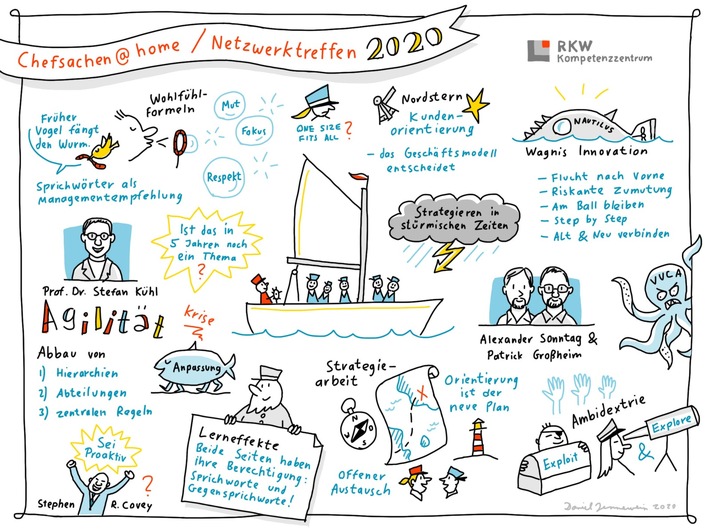 Chefsachen@home / Netzwerktreffen 2020
RKW
Kompetenzzentrum
Früher
Vogel fängt
den Wurm.
Sprichwörter als
Managementempfehlung
Wohlfühl-
formeln
Mut
Fokus
Respekt
ONE SIZE
FITS ALL ?
Nordstern
Kunden-
orientierung
– das Geschäftsmodell
entscheidet
NAUTILUS
Wagnis Innovation
– Flucht nach Vorne
– Riskante Zumutung
– Am Ball bleiben
– Step by Step
– Alt & Neu verbinden
Prof. Dr. Stefan Kühl
Ist das in
5 Jahren noch
ein Thema
?
Strategieren in
stürmischen Zeiten
Alexander Sonntag &
Patrick Großheim
VUCA
Agilität
Krise
Abbau von
1) Hierarchien
2) Abteilungen
3) zentralen Regeln
Anpassung
Sei
Proaktiv
?
Stephen R. Covey
Lerneffekte
Beide Seiten haben
ihre Berechtigung:
Sprichworte und
Gegensprichworte!
Strategie-
arbeit
N
O
S
W
X
Orientierung
ist der
neue Plan
Offener
Austausch
Ambidextrie
Exploit
&
Explore
2020